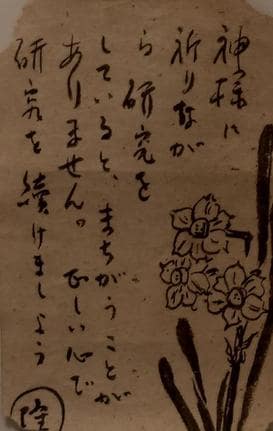 神様に
祈りなが
ら研究を
していると、まちがうことが
ありません。正しい心で
研究を続けましょう
隆